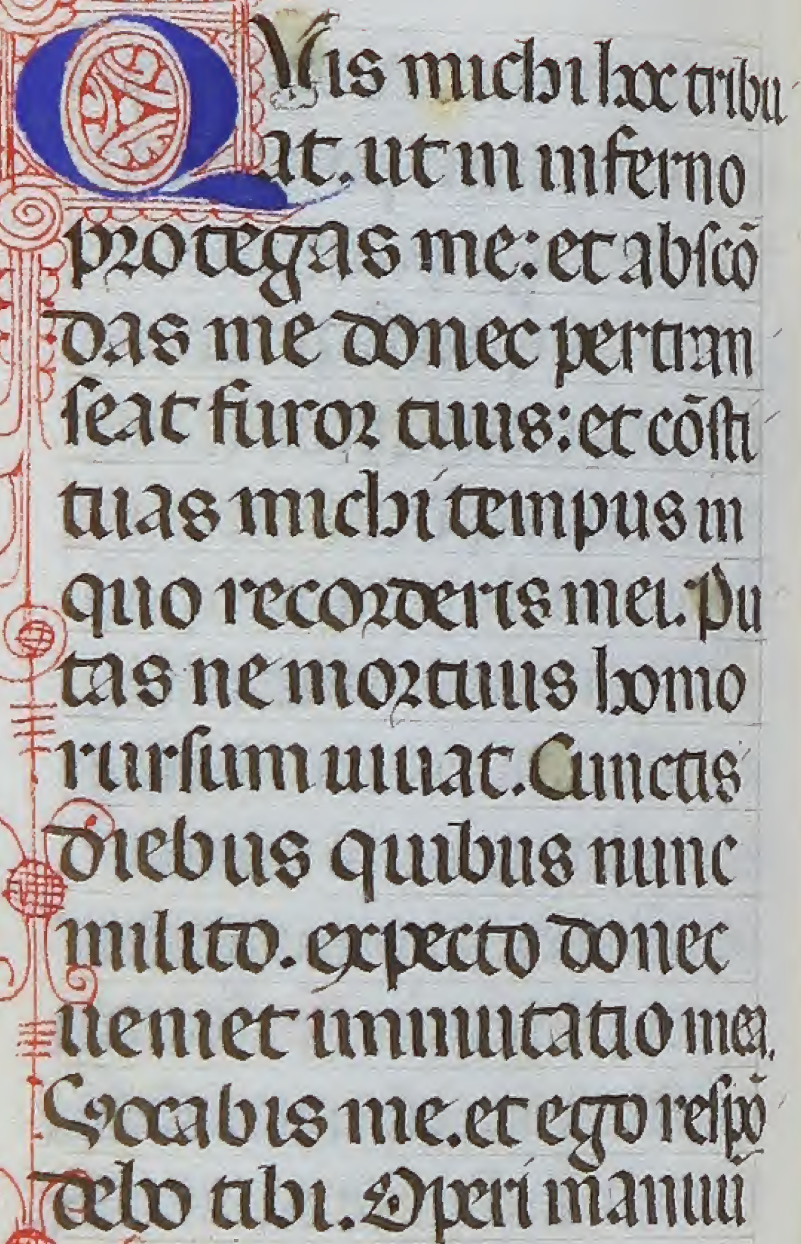 QVis michi hoc tribu
at. ut in inferno
protegas me: et abscō
das me donec pertran
seat furor tuus: et cōsti
tuas michi tempus in
quo recorderis mei. Pu
tas ne mortuus homo
rursum uiuat. Cunctis
diebus quibus nunc
milito. expecto donec
ueniet immutatio mea.
Vocabis me. et ego respō
debo tibi. Operi manuū